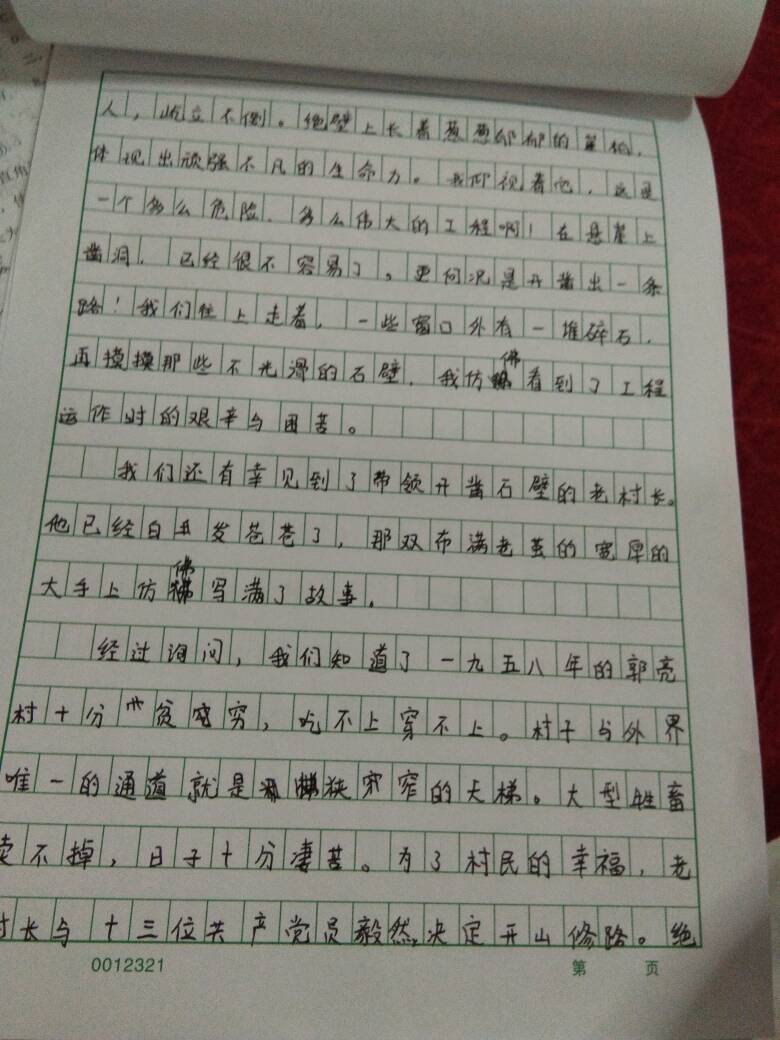 人，屹立不倒。绝壁上长着葱葱郁郁的
体现出顽强不凡的生命力。我仰视着它，这是
一个多么危险、多么伟大的工程啊！在悬崖上
凿洞，已经很不容易了。更何况是开凿出一条
路！我们往上走着，一些窗口外有一堆碎石，
再摸摸那些不光滑的石壁，我仿佛看到了工程
运作时的艰辛与困苦。
我们还有幸见到了带领开凿石壁的老村长。
他已经白发苍苍了，那双布满老茧的宽厚的
大手上仿佛写满了故事。
经过询问，我们知道了一九五八年的郭亮
村十分贫穷，吃不上穿不上。村子与外界
唯一的通道就是狭窄的天梯。大型牲畜
卖不掉，日子十分凄苦。为了村民的幸福，老
村长与十三位共产党员毅然决定开山修路。绝
0012321
第 页